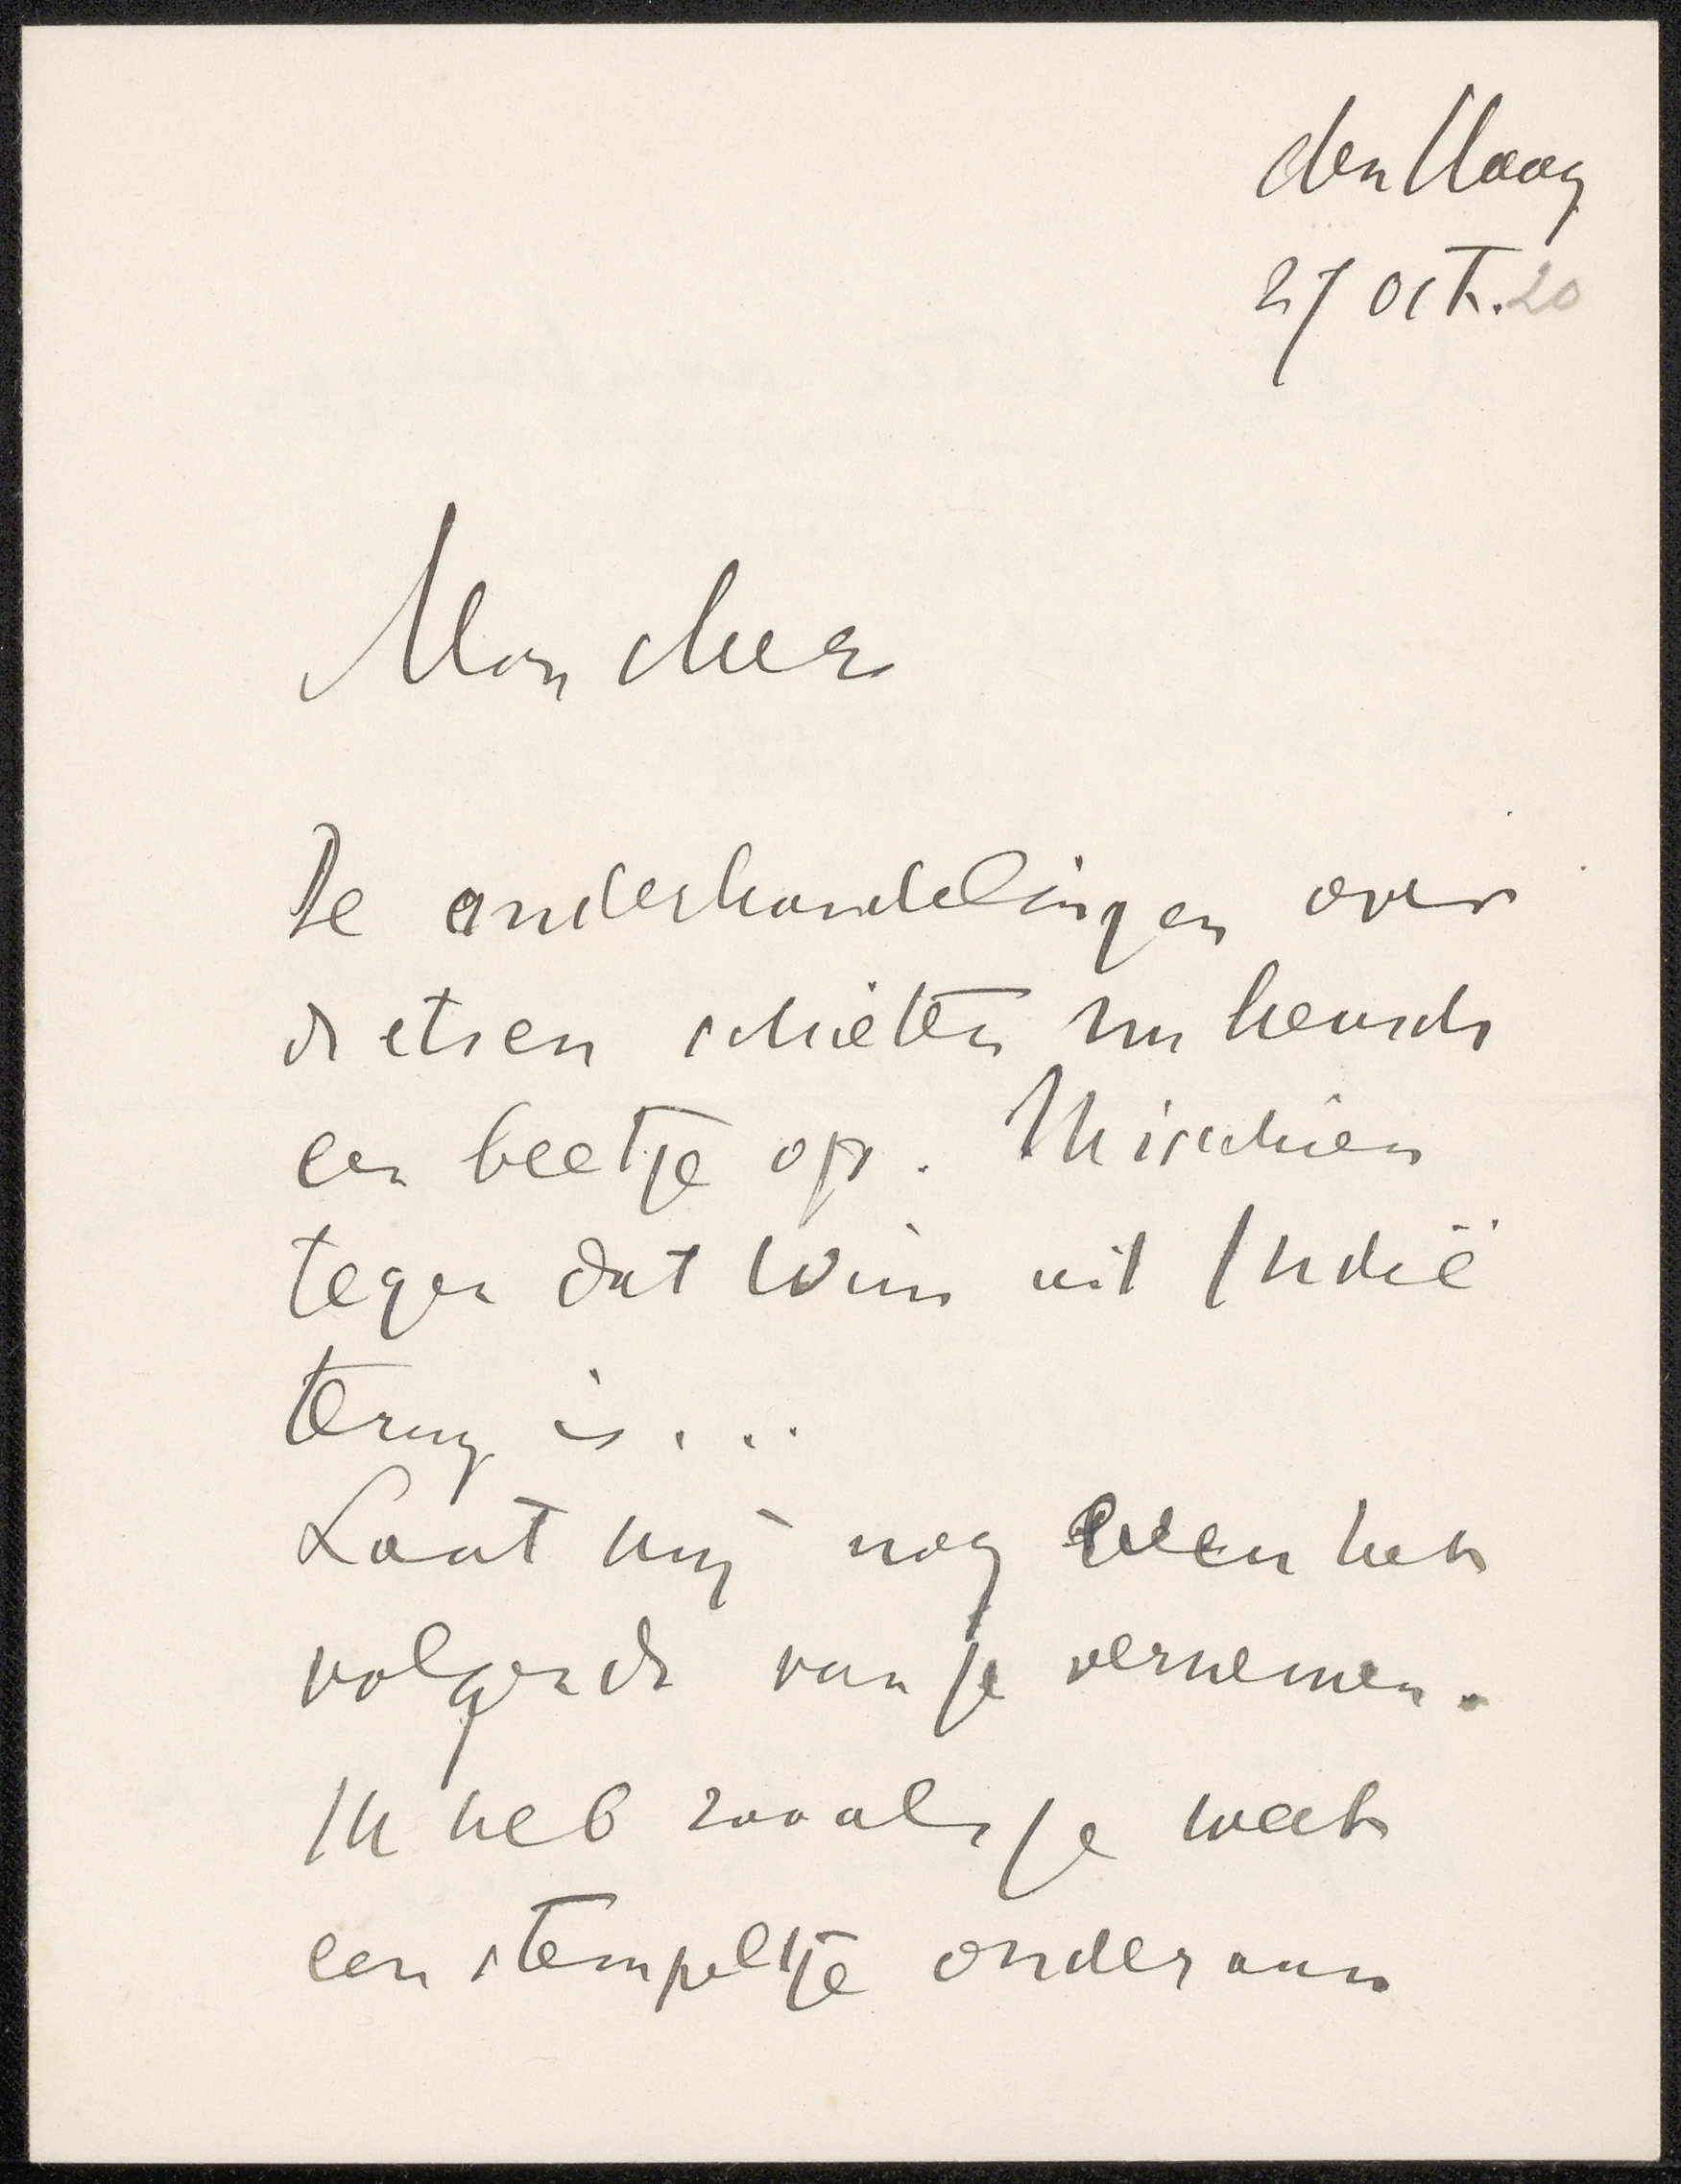 den Haag
27 Oct. 20
Mon cher
De onderhandelingen over
de etsen schieten nu heusch
een beetje op. Misschien
tegen dat Wim uit Indië
terug is...
Laat mij nog even het
volgende van je vernemen.
Ik heb zooals je weet
een stempeltje onder aan